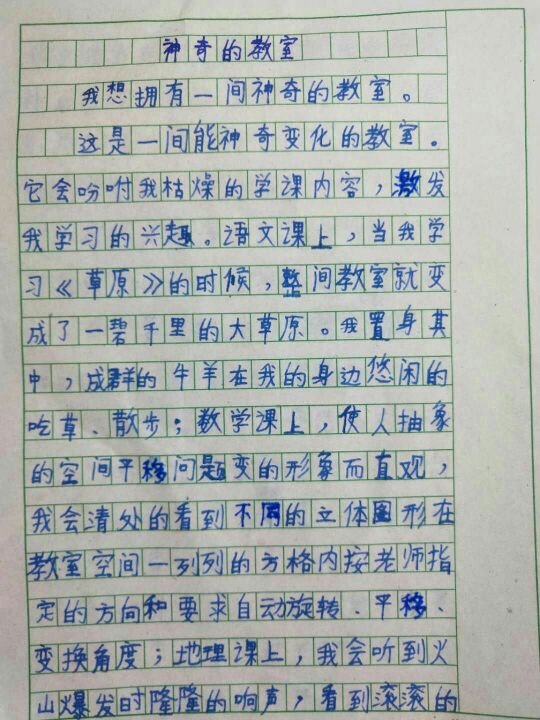 神奇的教室
我想拥有一间神奇的教室。
这是一间能神奇变化的教室。
它会吩咐我枯燥的学课内容，激发
我学习的兴趣。语文课上，当我学
习《草原》的时候，整间教室就变
成了一碧千里的大草原。我置身其
中，成群的牛羊在我的身边悠闲的
吃草、散步；数学课上，使人抽象
的空间平移问题变的形象而直观，
我会清处的看到不同的立体图形在
教室空间一列列的方格内按老师指
定的方向和要求自动旋转、平移、
变换角度；地理课上，我会听到火
山爆发时隆隆的响声，看到滚滚的